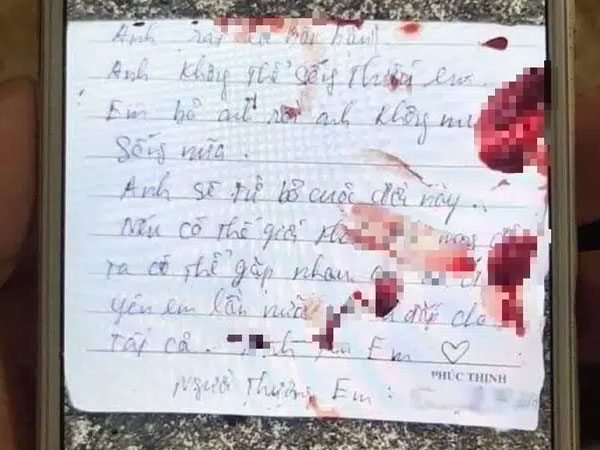 Anh rất ân hận!
Anh không thể sống thiếu em.
Em bỏ anh rồi anh không
sống nữa.
Anh sẽ từ bỏ cuộc đời này..
Nếu có thế giới
ta có thể gặp nhau
yêu em lần nữa đắp cho
tất cả. Em ♡
PHÚC THỊNH
Người Thương Em: